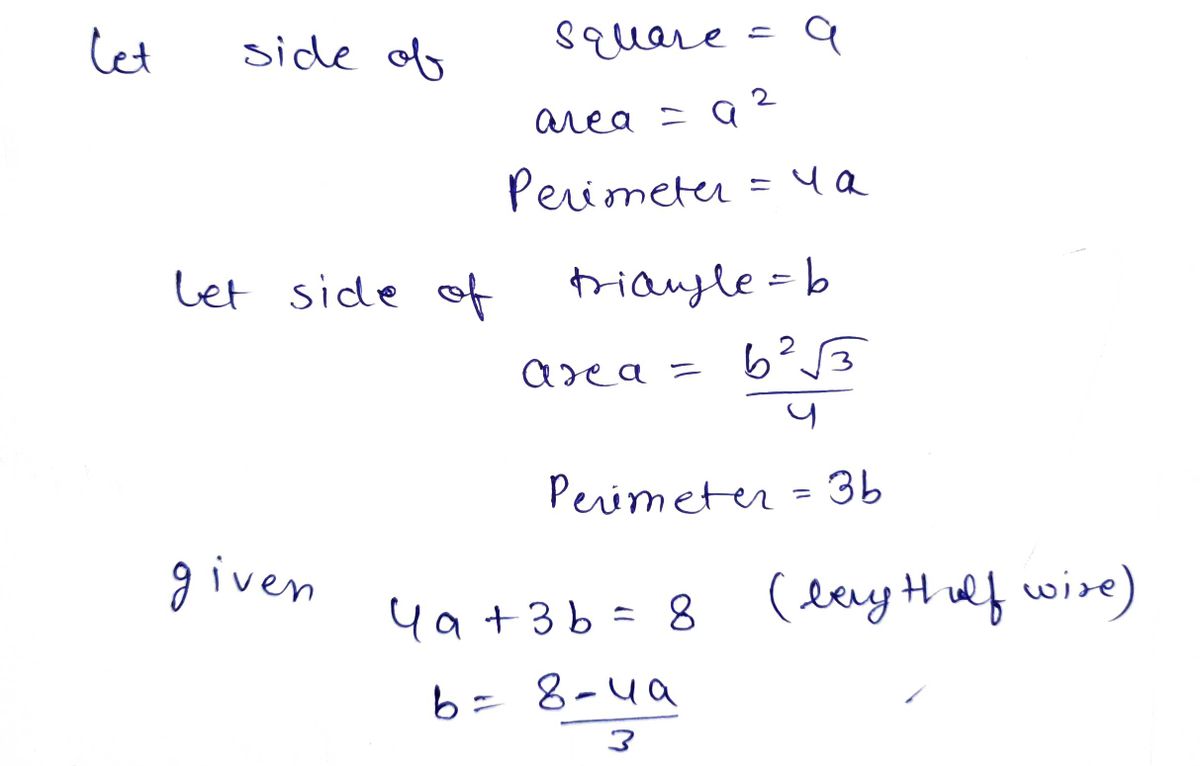 Let side of square = a
area = a²
Perimeter = 4a
Let side of triangle = b
area = b²√3/4
Perimeter = 3b
given 4a + 3b = 8 (length of wire)
b = 8-4a/3